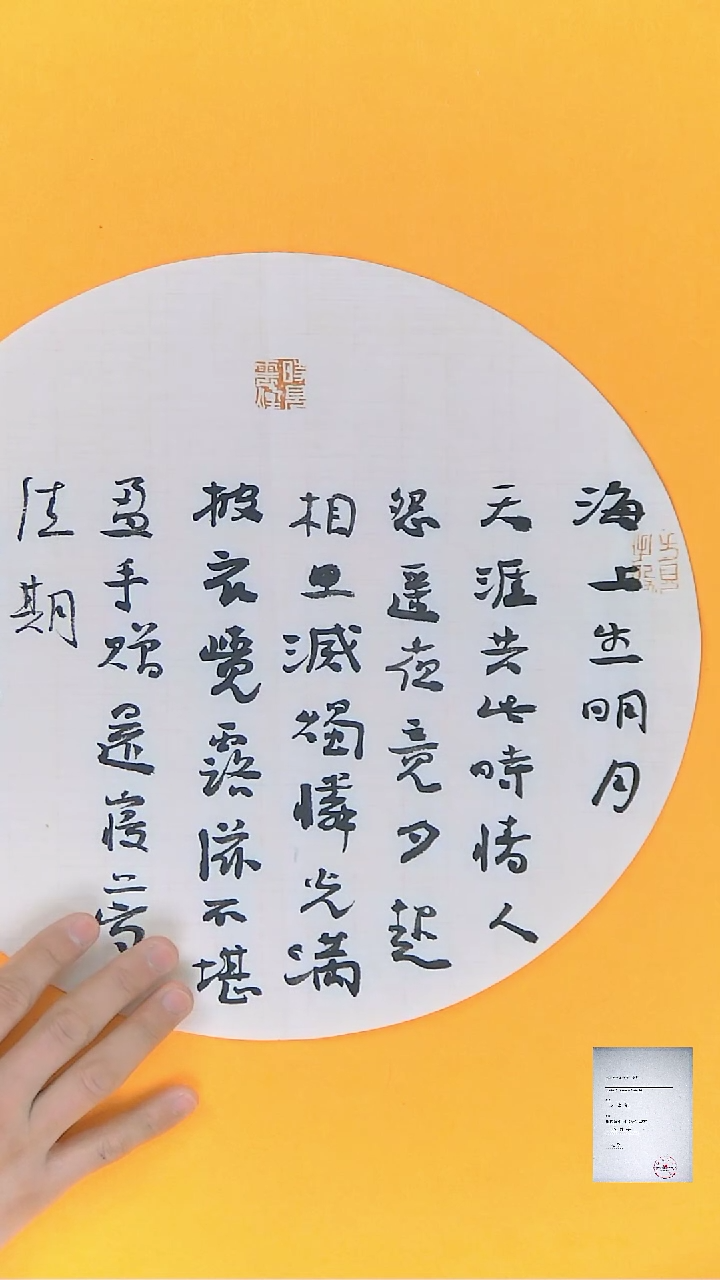 海上生明月
天涯共此時情人
怨遥夜竟夕起
相思滅燭憐光滿
披衣覺露滋不堪
盈手贈還寢夢
佳期